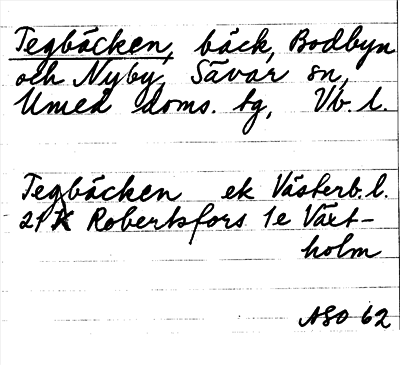 Tegbäcken, bäck, Bodbyn
och Nyby, Sävar sn,
Umeå doms. tg, Vb. l.
Tegbäcken ek Västerb. l.
21 K Robertsfors 1e Växt-
holm
ASO 62